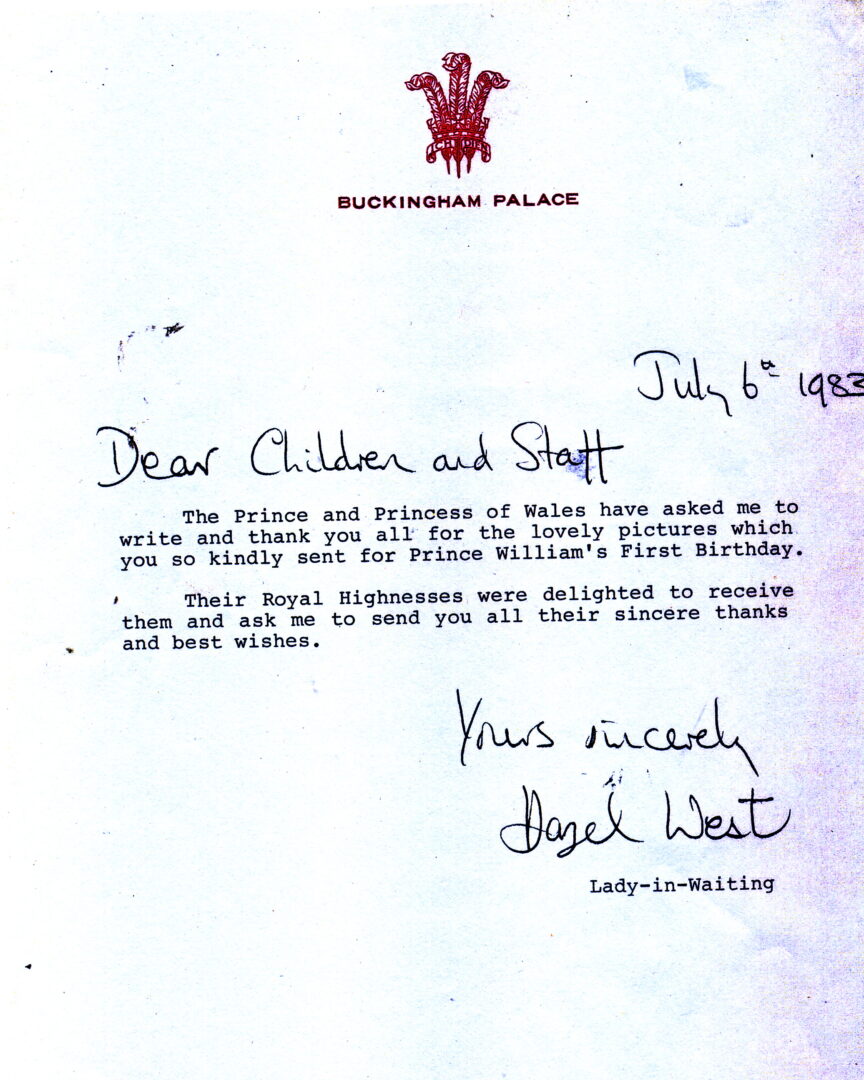 BUCKINGHAM PALACE
July 6th 1983
Dear Children and Staff
The Prince and Princess of Wales have asked me to
write and thank you all for the lovely pictures which
you so kindly sent for Prince William's First Birthday.
Their Royal Highnesses were delighted to receive
them and ask me to send you all their sincere thanks
and best wishes.
Yours sincerely
Hazel West
Lady-in-Waiting